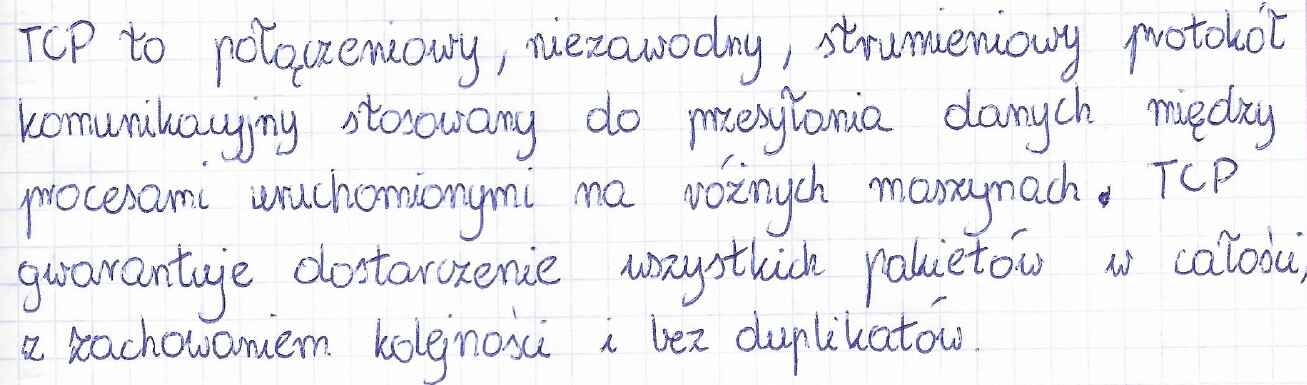 TCP to połączeniowy, niezawodny, strumieniowy protokół
komunikacyjny stosowany do przesyłania danych między
procesami uruchomionymi na różnych maszynach. TCP
gwarantuje dostarczenie wszystkich pakietów w całości,
z zachowaniem kolejności i bez duplikatów.